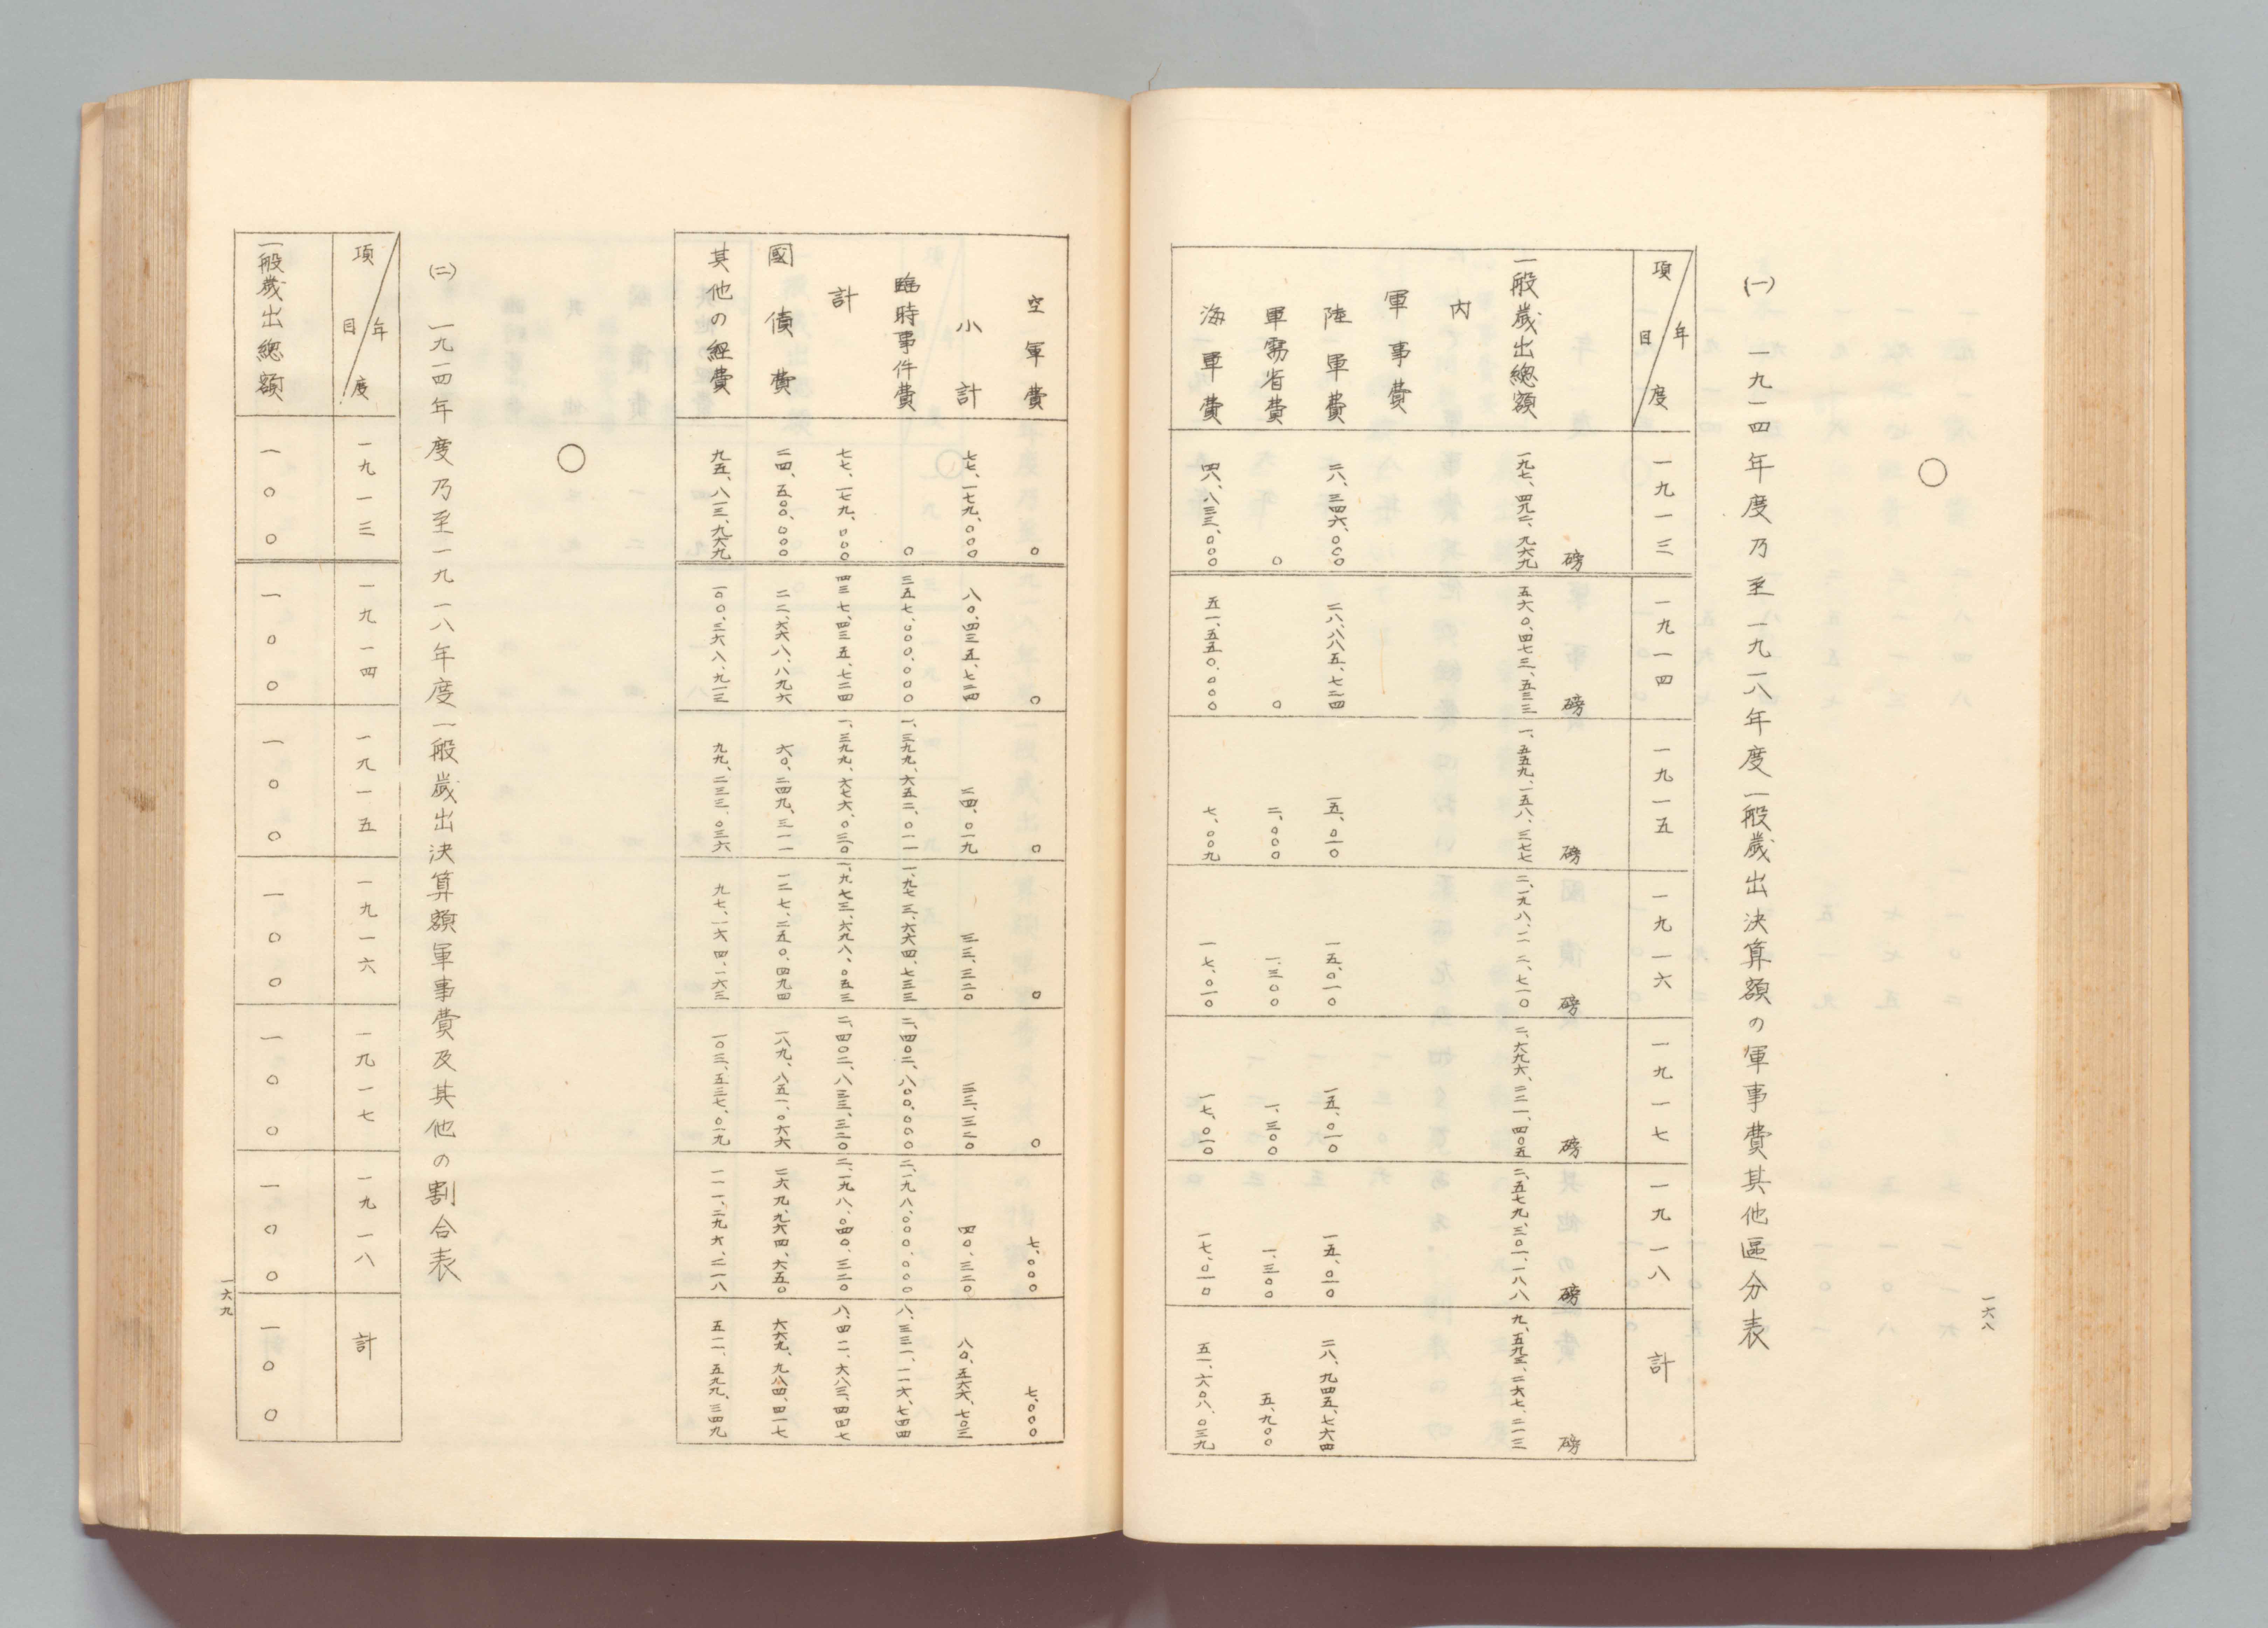 一六八
○
(一) 一九一四年度乃至一九一八年度一般歳出決算額の軍事費其他區分表
項目 年度 一九一三 一九一四 一九一五 一九一六 一九一七 一九一八 計
磅 磅 磅 磅 磅 磅 磅
一般歳出總額 一九七、四九二、九六九 五六〇、四七三、五三三 一、五五九、一五八、三七七 二、一九八、一一二、七一〇 二、六九六、二二一、四〇五 二、五七九、三〇一、一八八 九、五九三、二六七、二一三
内
軍事費
陸軍費 二八、三四六、〇〇〇 二八、八八五、七二四 一五、〇一〇 一五、〇一〇 一五、〇一〇 一五、〇一〇 二八、九四五、七六四
軍需省費 〇 〇 二、〇〇〇 一、三〇〇 一、三〇〇 一、三〇〇 五、九〇〇
海軍費 四八、八三三、〇〇〇 五一、五五〇、〇〇〇 七、〇〇九 一七、〇一〇 一七、〇一〇 一七、〇一〇 五一、六〇八、〇三九
空軍費 〇 〇 〇 〇 〇 七、〇〇〇 七、〇〇〇
小計 七七、一七九、〇〇〇 八〇、四三五、七二四 二四、〇一九 三三、三二〇 三三、三二〇 四〇、三二〇 八〇、五六六、七〇三
臨時事件費 〇 三五七、〇〇〇、〇〇〇 一、三九九、六五二、〇一一 一、九七三、六六四、七三三 二、四〇二、八〇〇、〇〇〇 二、一九八、〇〇〇、〇〇〇 八、三三一、一一六、七四四
計 七七、一七九、〇〇〇 四三七、四三五、七二四 一、三九九、六七六、〇三〇 一、九七三、六九八、〇五三 二、四〇二、八三三、三二〇 二、一九八、〇四〇、三二〇 八、四一一、六八三、四四七
國債費 二四、五〇〇、〇〇〇 二二、六六八、八九六 六〇、二四九、三一一 一二七、二五〇、四九四 一八九、八五一、〇六六 二六九、九六四、六五〇 六六九、九八四、四一七
其他の経費 九五、八一三、九六九 一〇〇、三六八、九一三 九九、二三三、〇三六 九七、一六四、一六三 一〇三、五三七、〇一九 一一一、二九六、二一八 五一一、五九九、三四九
○
(二) 一九一四年度乃至一九一八年度一般歳出決算額軍事費及其他の割合表
項目 年度 一九一三 一九一四 一九一五 一九一六 一九一七 一九一八 計
一般歳出總額 一〇〇 一〇〇 一〇〇 一〇〇 一〇〇 一〇〇 一〇〇
一六九